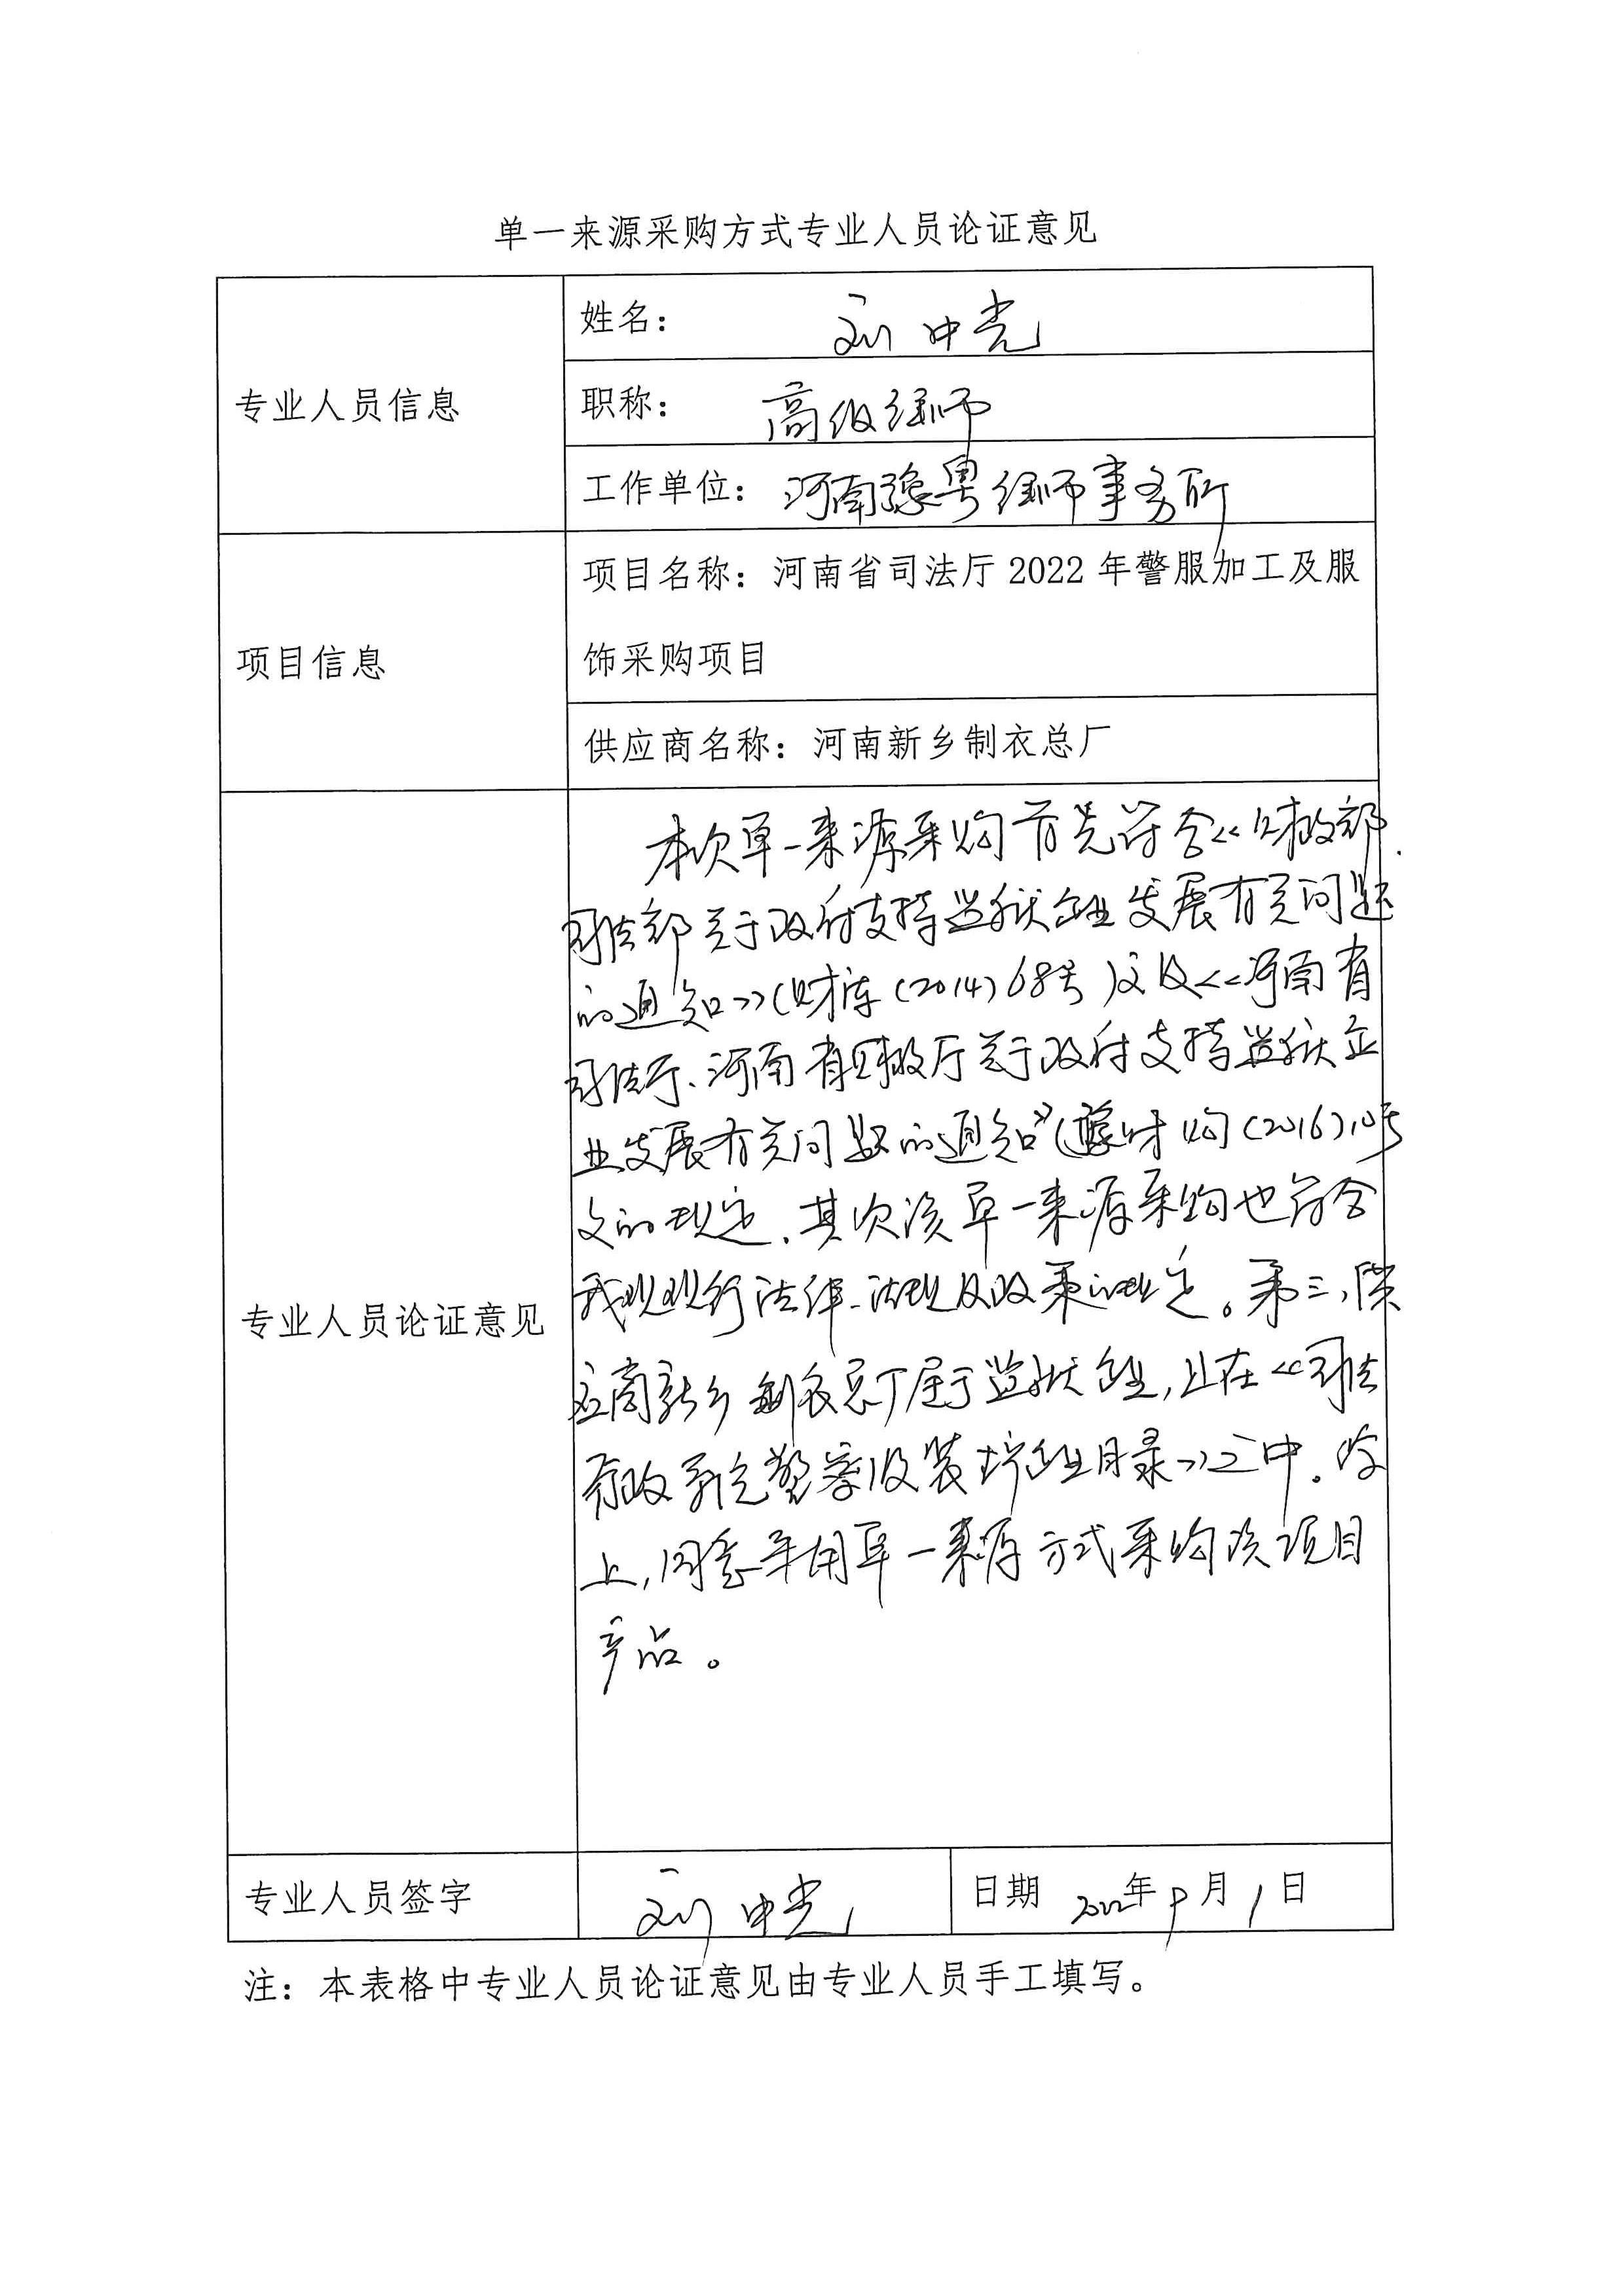 单一来源采购方式专业人员论证意见
专业人员信息
姓名： 刘中光
职称： 高级律师
工作单位： 河南豫粤律师事务所
项目信息
项目名称：河南省司法厅 2022 年警服加工及服
饰采购项目
供应商名称：河南新乡制衣总厂
专业人员论证意见
本次单一来源采购首先符合《财政部、
司法部关于政府支持监狱企业发展有关问题
的通知》（财库（2014）68号）文及《河南省
司法厅、河南省财政厅关于政府支持监狱企
业发展有关问题的通知》（豫财购（2016）10号
文的规定、其次该单一来源采购也符合
我国现行法律、法规及政策的规定。第三，供
应商新乡制衣总厂属于监狱企业，且在《司法
行政系统警察服装生产企业目录》之中。综
上，同意采用单一来源方式采购该项目
产品。
专业人员签字
刘中光
日期 2022年9月1日
注：本表格中专业人员论证意见由专业人员手工填写。